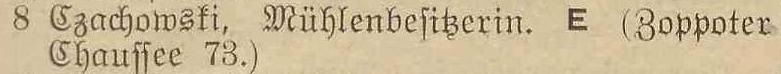 8 Czachowski, Mühlenbesitzerin. E (Zoppoter
Chaussee 73.)